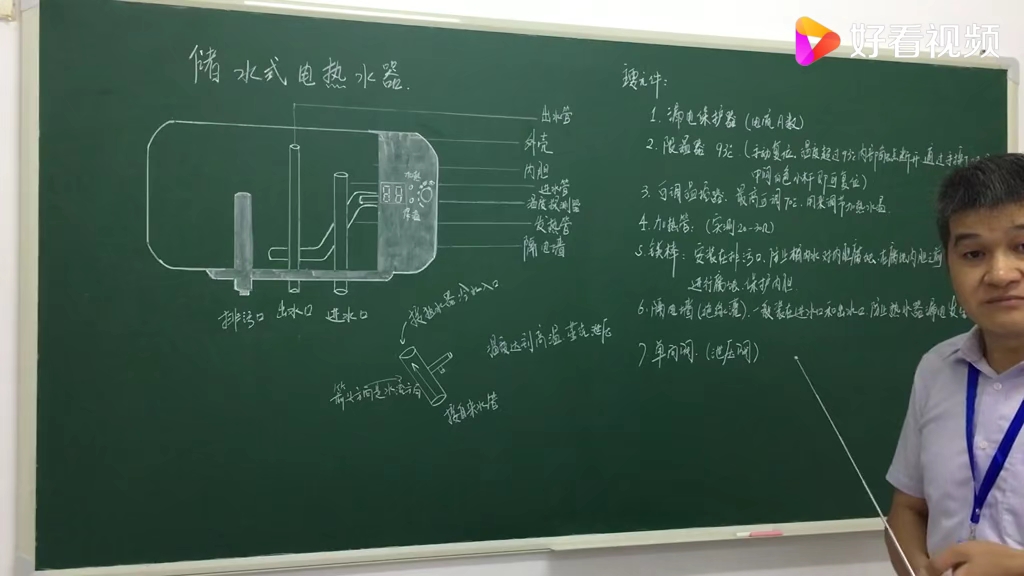 好看视频
储水式电热水器.
出水管
外壳
内胆
进水管
温度探测器
发热管
隔电墙
加热
88
保温
排污口 出水口 进水口
接热水器冷水入口
箭头方向是水流方向
接自来水管
主要元件:
1. 漏电保护器 (电流A数)
2. 限温器 93℃ (手动复位,温度超过93℃内部自动断开,通过手按
中间白色小杆即可复位)
3. 可调温感器: 最高可调75℃, 用来调节加热水温.
4. 加热管: (实测20-30Ω)
5. 镁棒: 安装在排污口, 防止桶内水对内胆腐蚀,
进行腐蚀, 保护内胆
6. 隔电墙(绝缘灌). 一般装在进水口和出水口, 防止热水器漏电
7. 单向阀. (泄压阀)